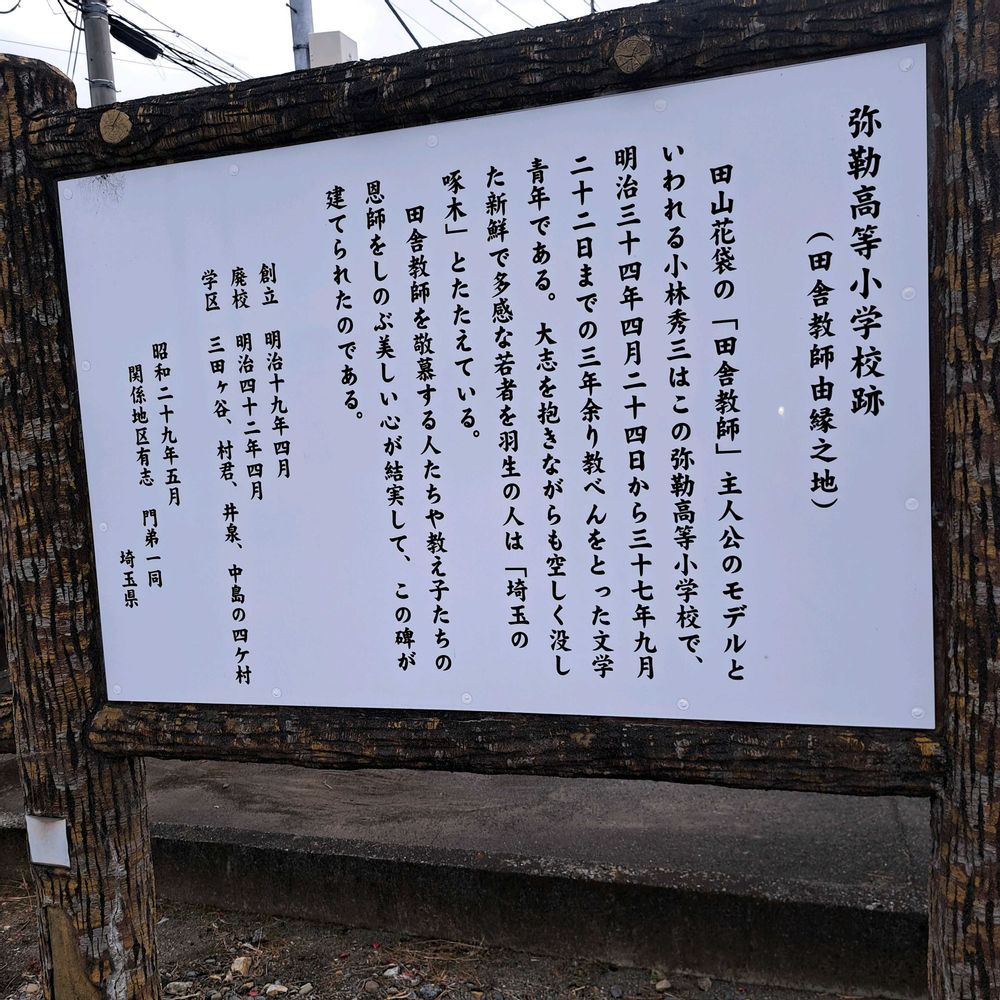 弥勒高等小学校跡
（田舎教師由縁之地）
田山花袋の「田舎教師」主人公のモデルと
いわれる小林秀三はこの弥勒高等小学校で、
明治三十四年四月二十四日から三十七年九月
二十二日までの三年余り教べんをとった文学
青年である。大志を抱きながらも空しく没し
た新鮮で多感な若者を羽生の人は「埼玉の
啄木」とたたえている。
田舎教師を敬慕する人たちや教え子たちの
恩師をしのぶ美しい心が結実して、この碑が
建てられたのである。
創立　明治十九年四月
廃校　明治四十二年四月
学区　三田ヶ谷、村君、井泉、中島の四ケ村
昭和二十九年五月
関係地区有志　門弟一同
埼玉県